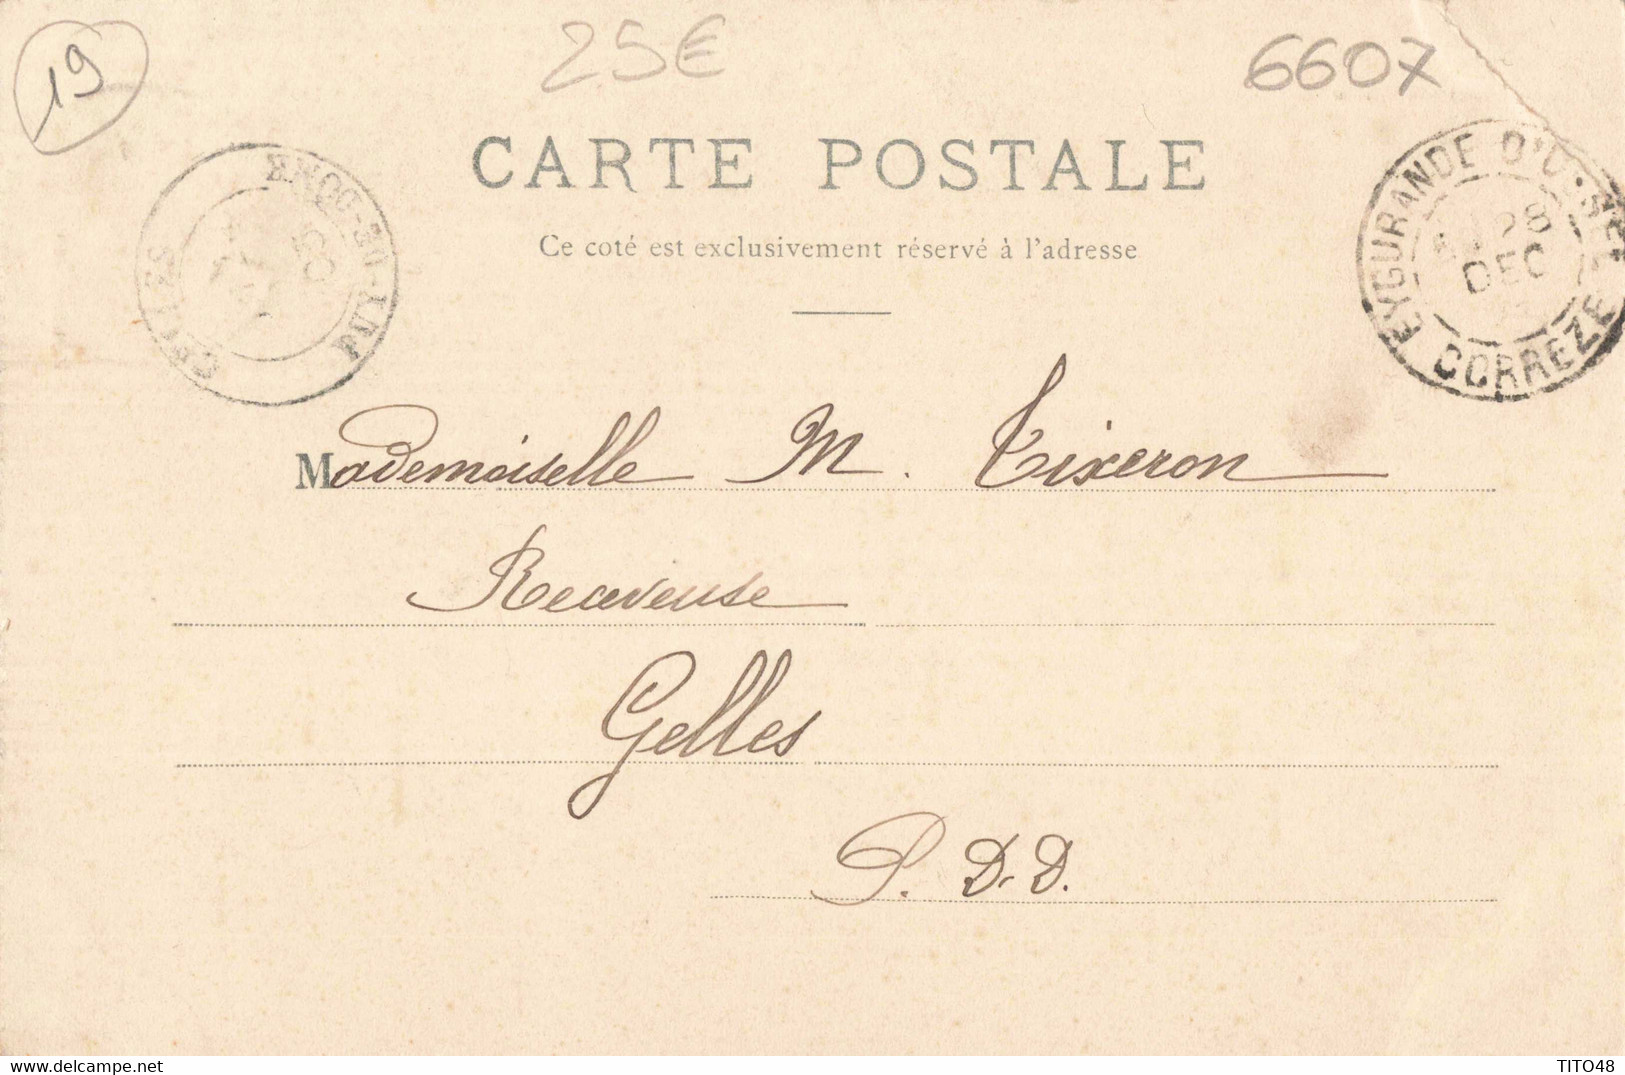 19
25€
6607
CARTE POSTALE
Ce coté est exclusivement réservé à l'adresse
PUY-DE-DOME
EYGURANDE D'US
28
DEC
CORREZE
Mademoiselle M. Tixeron
Receveuse
Gelles
P. D. D.
TITO48